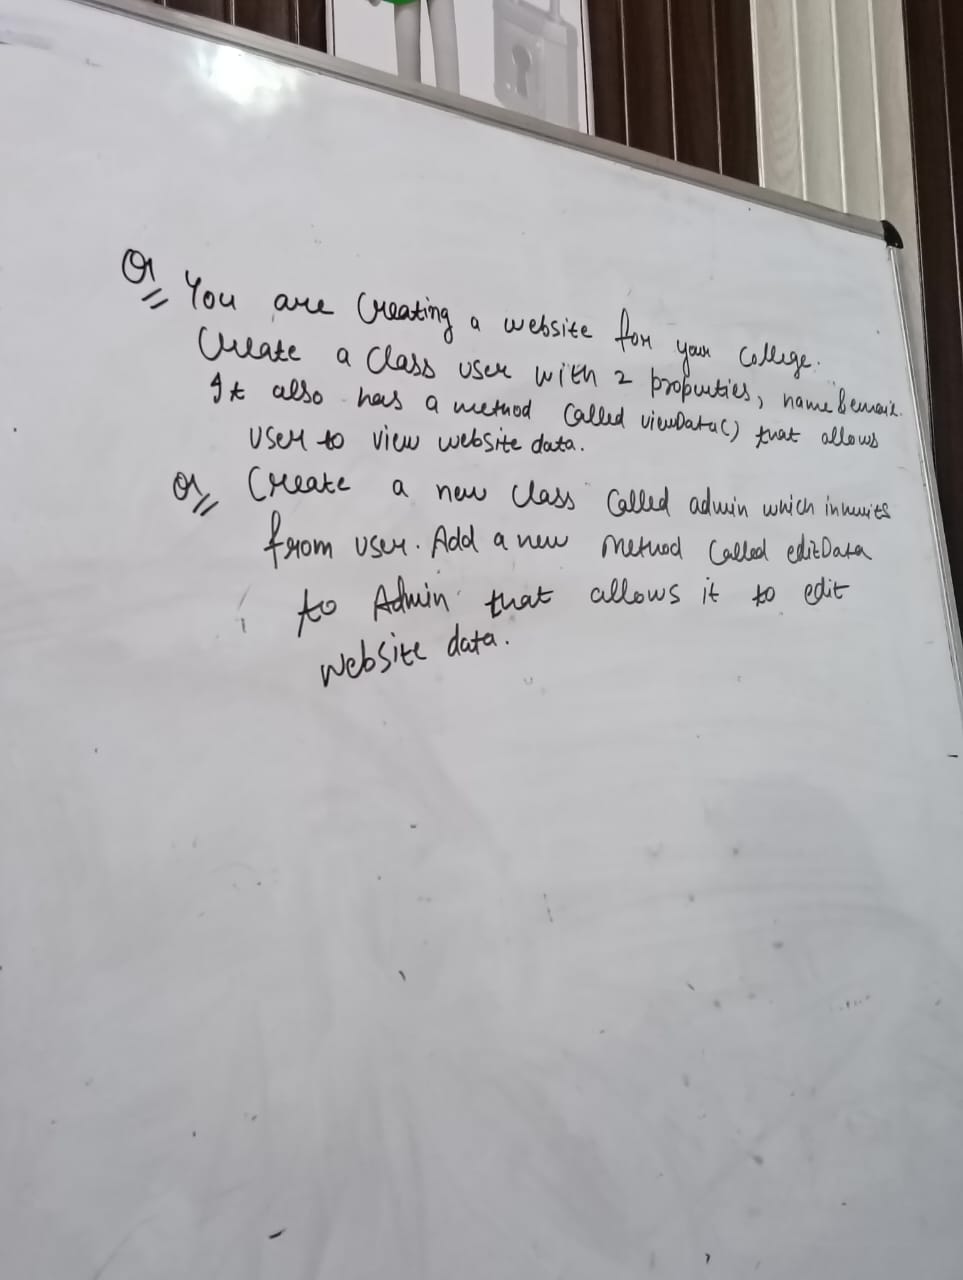 Q
You are creating a website for your college.
Create a class user with 2 properties, name & email.
It also has a method called viewData() that allows
user to view website data.
Q Create a new class called admin which inherits
from user. Add a new method called editData
to Admin that allows it to edit
website data.